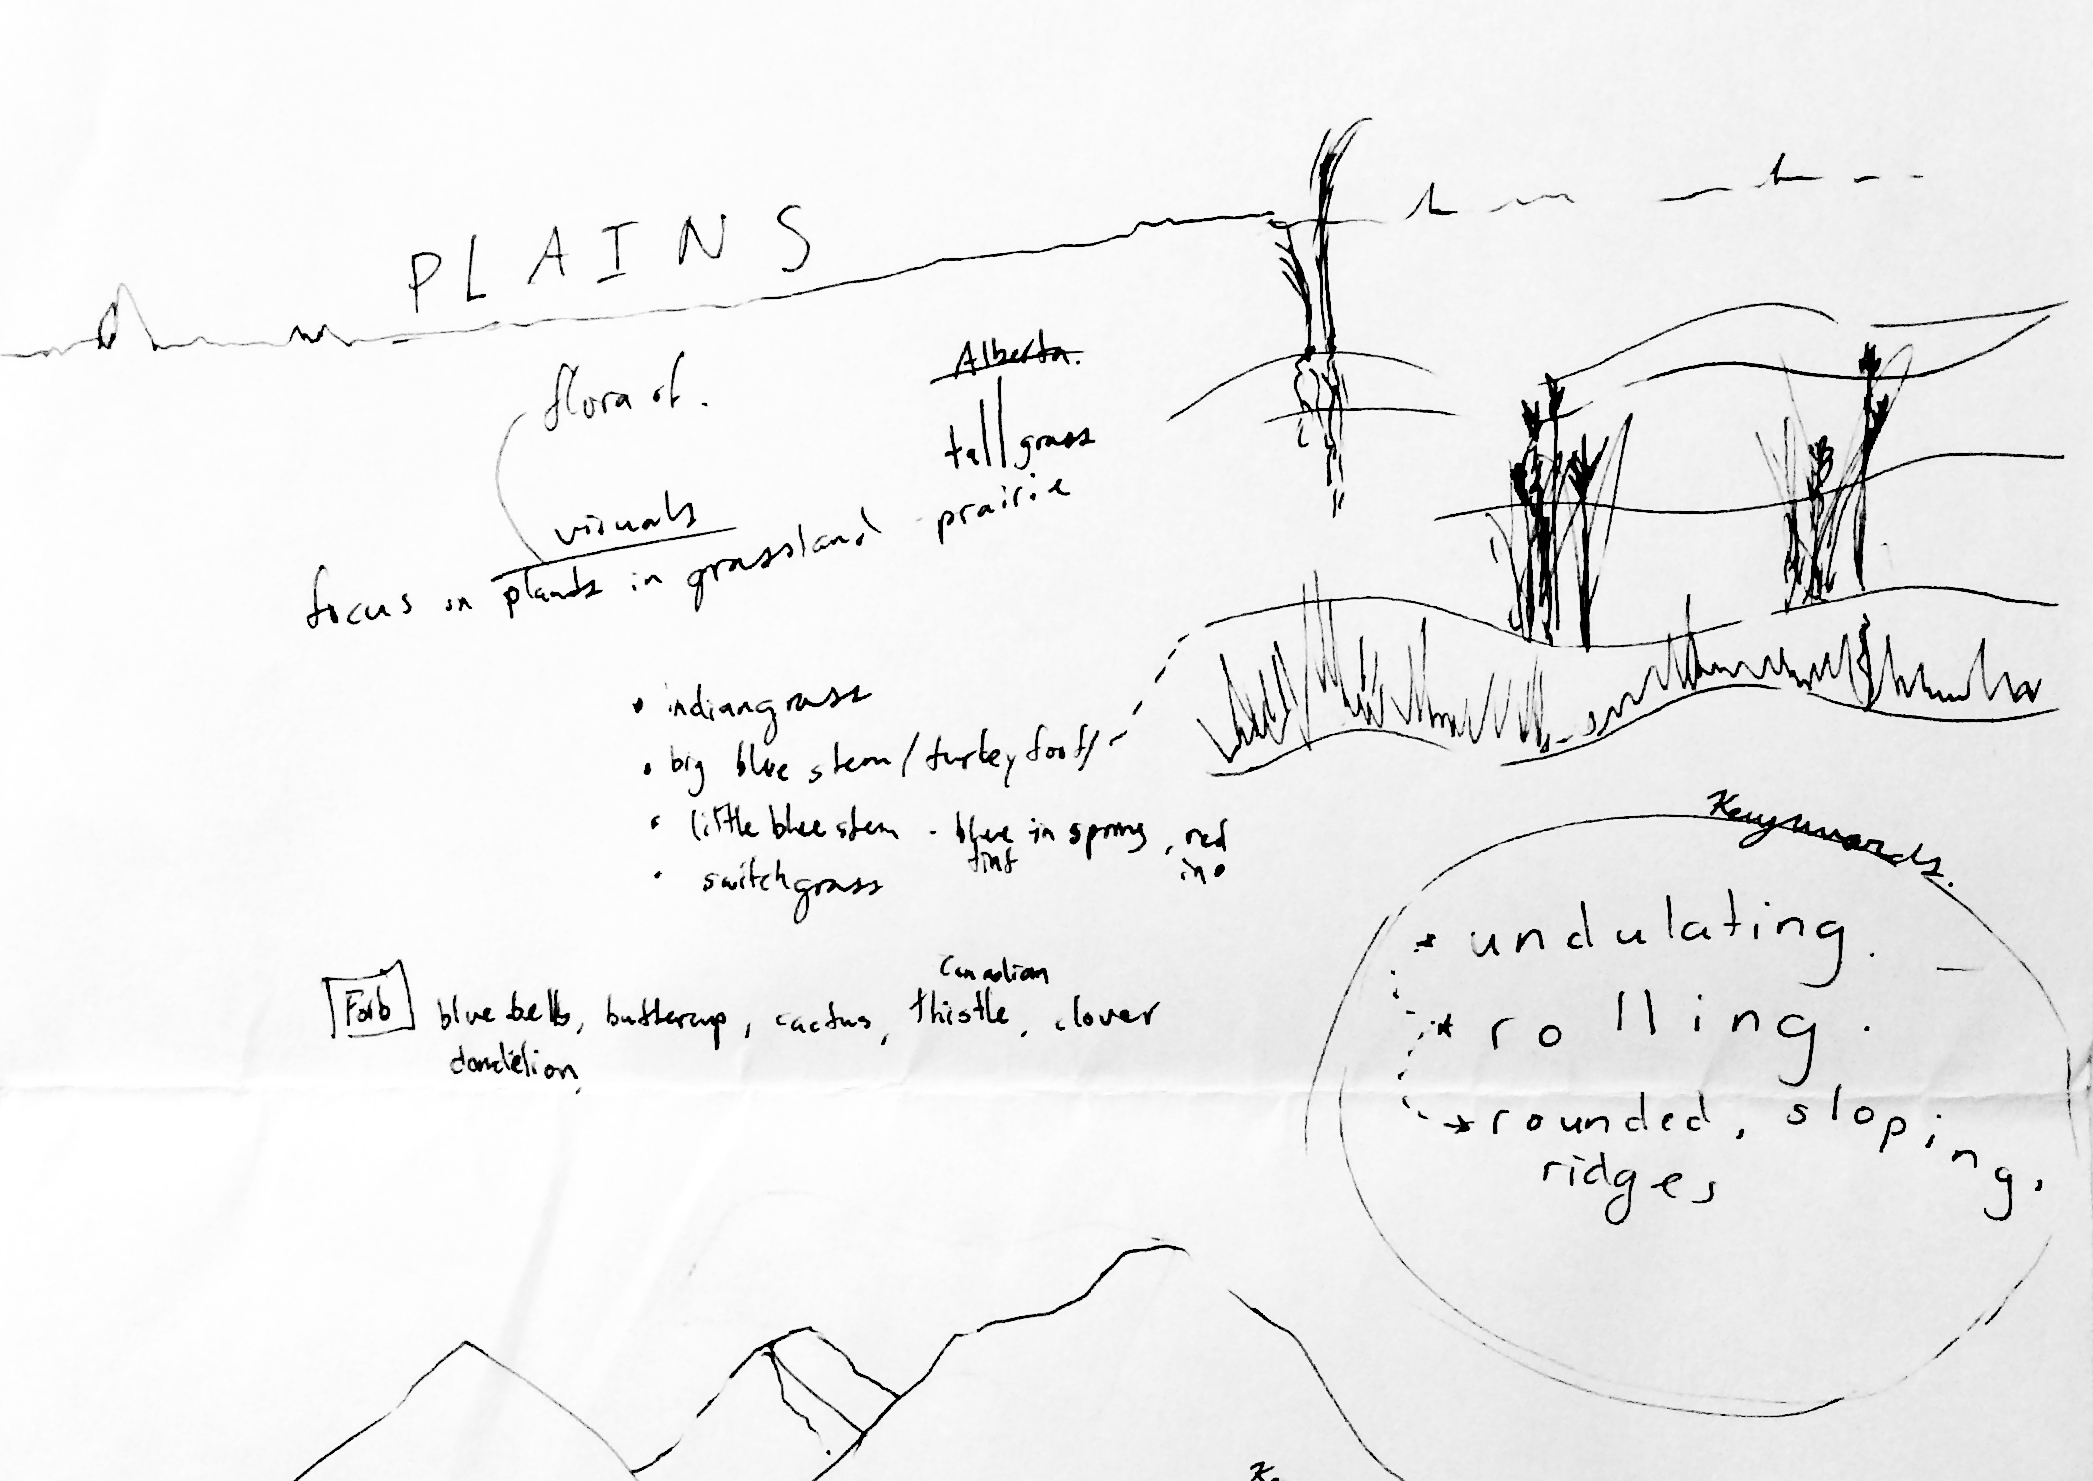 PLAINS
flora of.
Alberta.
tall grass
prairie
visuals
focus on plants in grassland
• indiangrass
• big blue stem / turkey foot /
• little blue stem - blue in spring, red
tint in
• switchgrass
Forb
Canadian
blue bells, buttercup, cactus, thistle, clover
dandelion,
Keywords.
* undulating.
* rolling.
* rounded, sloping,
ridges